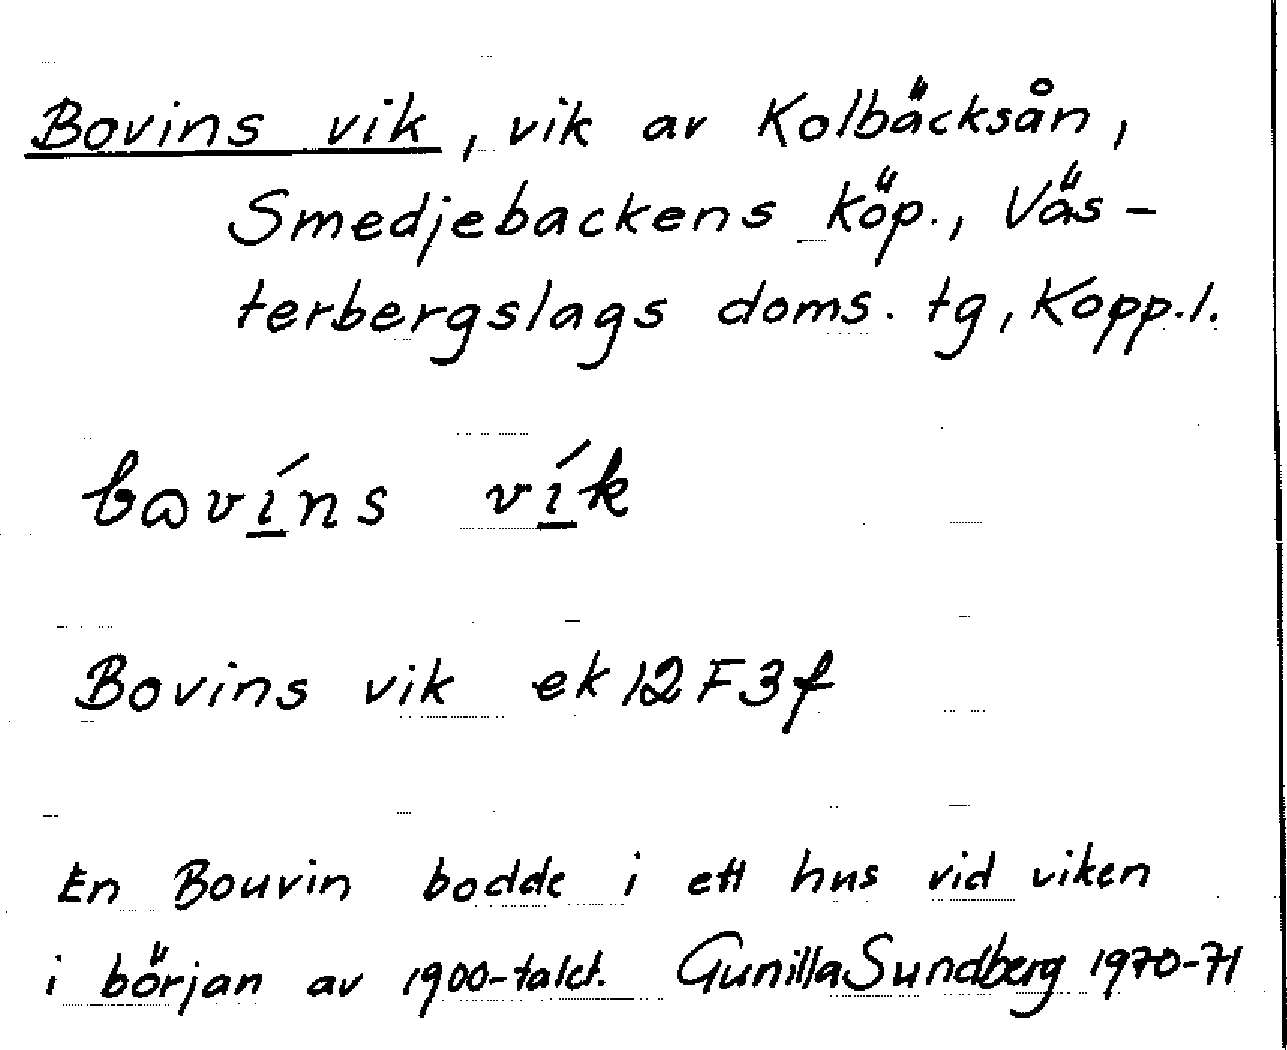 Bovins vik, vik av Kolbäcksån,
Smedjebackens köp., Väs-
terbergslags doms. tg, Kopp.l.
bɷvíns vík
Bovins vik ek 12F3f
En Bouvin bodde i ett hus vid viken
i början av 1900-talet. Gunilla Sundberg 1970-71